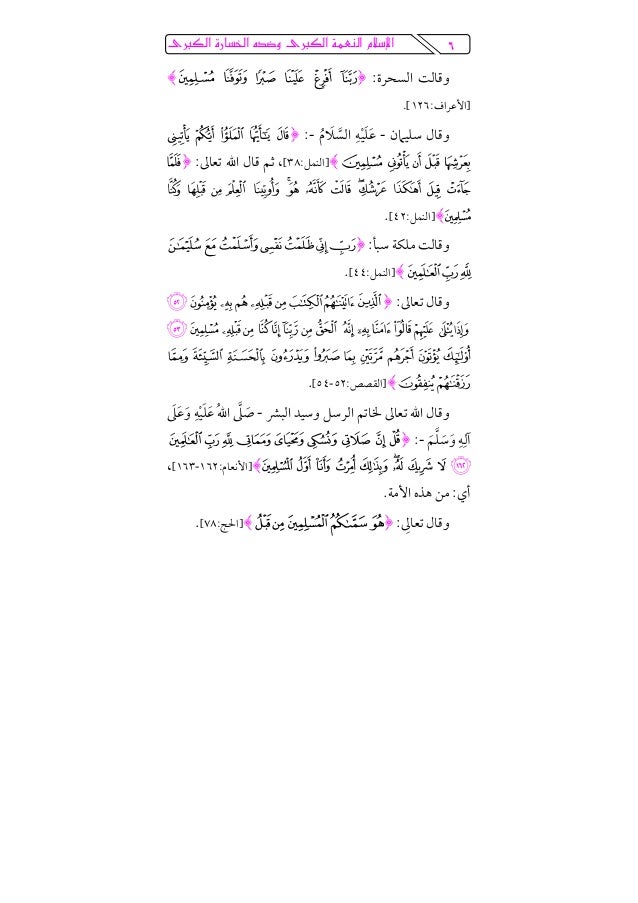 ٦ الإسلام النعمة الكبرى وضده الخسارة الكبرى
وقالت السحرة: ﴿رَبَّنَآ أَفۡرِغۡ عَلَيۡنَا صَبۡرٗا وَتَوَفَّنَا مُسۡلِمِينَ﴾
[الأعراف:١٢٦].
وقال سليمان - عَلَيْهِ السَّلَامُ -: ﴿قَالَ يَٰٓأَيُّهَا ٱلۡمَلَؤُاْ أَيُّكُمۡ يَأۡتِينِي
بِعَرۡشِهَا قَبۡلَ أَن يَأۡتُونِي مُسۡلِمِينَ﴾[النمل:٣٨]، ثم قال الله تعالى: ﴿فَلَمَّا
جَآءَتۡ قِيلَ أَهَٰكَذَا عَرۡشُكِۖ قَالَتۡ كَأَنَّهُۥ هُوَۚ وَأُوتِينَا ٱلۡعِلۡمَ مِن قَبۡلِهَا وَكُنَّا
مُسۡلِمِينَ﴾[النمل:٤٢].
وقالت ملكة سبأ: ﴿رَبِّ إِنِّي ظَلَمۡتُ نَفۡسِي وَأَسۡلَمۡتُ مَعَ سُلَيۡمَٰنَ
لِلَّهِ رَبِّ ٱلۡعَٰلَمِينَ﴾[النمل:٤٤].
وقال تعالى: ﴿ٱلَّذِينَ ءَاتَيۡنَٰهُمُ ٱلۡكِتَٰبَ مِن قَبۡلِهِۦ هُم بِهِۦ يُؤۡمِنُونَ ٥٢
وَإِذَا يُتۡلَىٰ عَلَيۡهِمۡ قَالُوٓاْ ءَامَنَّا بِهِۦٓ إِنَّهُ ٱلۡحَقُّ مِن رَّبِّنَآ إِنَّا كُنَّا مِن قَبۡلِهِۦ مُسۡلِمِينَ ٥٣
أُوْلَٰٓئِكَ يُؤۡتَوۡنَ أَجۡرَهُم مَّرَّتَيۡنِ بِمَا صَبَرُواْ وَيَدۡرَءُونَ بِٱلۡحَسَنَةِ ٱلسَّيِّئَةَ وَمِمَّا
رَزَقۡنَٰهُمۡ يُنفِقُونَ﴾[القصص:٥٢-٥٤].
وقال الله تعالى لخاتم الرسل وسيد البشر - صَلَّى اللهُ عَلَيْهِ وَعَلَى
آلِهِ وَسَلَّمَ -: ﴿قُلۡ إِنَّ صَلَاتِي وَنُسُكِي وَمَحۡيَايَ وَمَمَاتِي لِلَّهِ رَبِّ ٱلۡعَٰلَمِينَ
١٦٢ لَا شَرِيكَ لَهُۥۖ وَبِذَٰلِكَ أُمِرۡتُ وَأَنَا۠ أَوَّلُ ٱلۡمُسۡلِمِينَ﴾[الأنعام:١٦٢-١٦٣]،
أي: من هذه الأمة.
وقال تعالى: ﴿هُوَ سَمَّىٰكُمُ ٱلۡمُسۡلِمِينَ مِن قَبۡلُ﴾[الحج:٧٨].